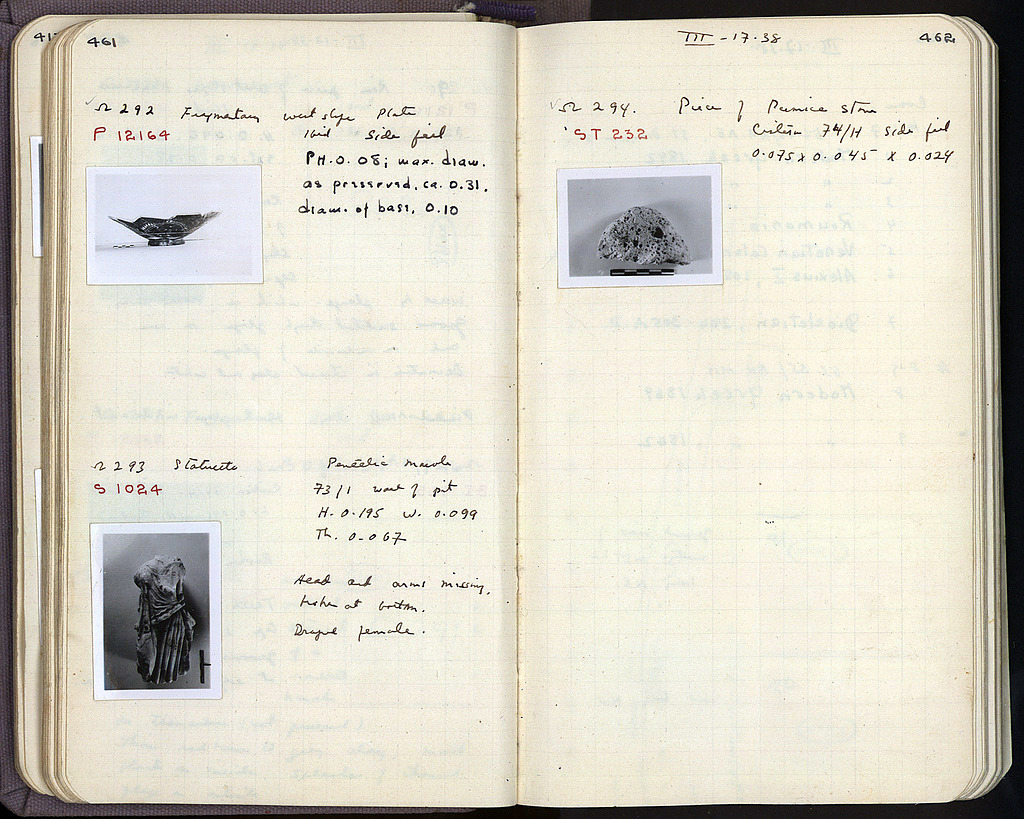 461
Ω 292 Fragmentary west slope Plate
P 12164
side fill
PH. 0.08; max. diam.
as preserved, ca. 0.31.
diam. of base, 0.10
Ω 293 Statuette Pentelic marble
S 1024
73/1 west of pit
H. 0.195 W. 0.099
Th. 0.067
Head and arms missing,
broken at bottom.
Draped female.
III - 17-38
462
Ω 294. Piece of Pumice stone
ST 232
Cistern 74/H side fill
0.075 x 0.045 x 0.024